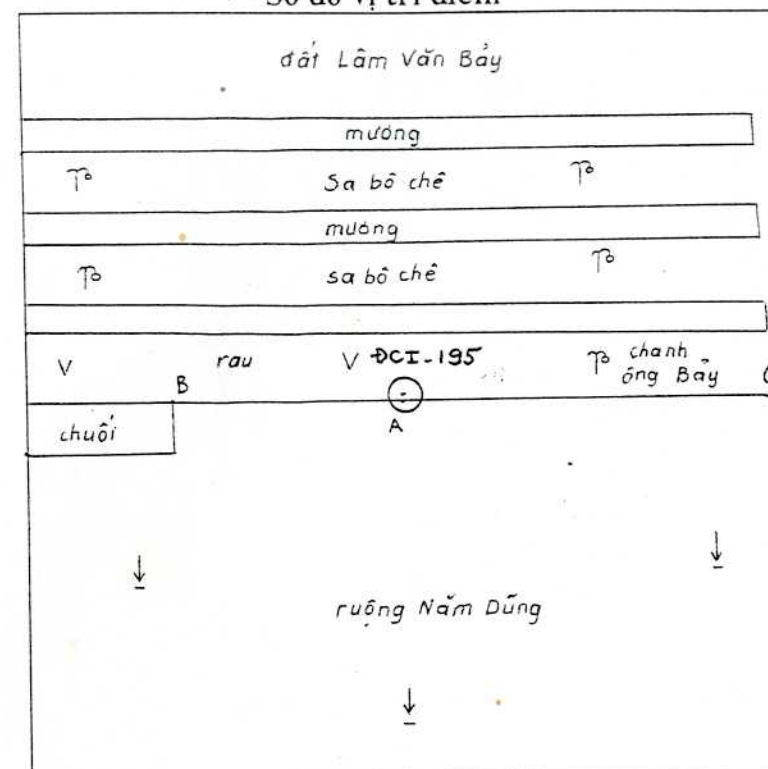 Sơ đồ vị trí điểm
đất Lâm Văn Bảy
mương
Sa bô chê
mương
sa bô chê
V rau V ĐCI-195 chanh
ông Bảy
B
A
chuối
ruộng Năm Dũng